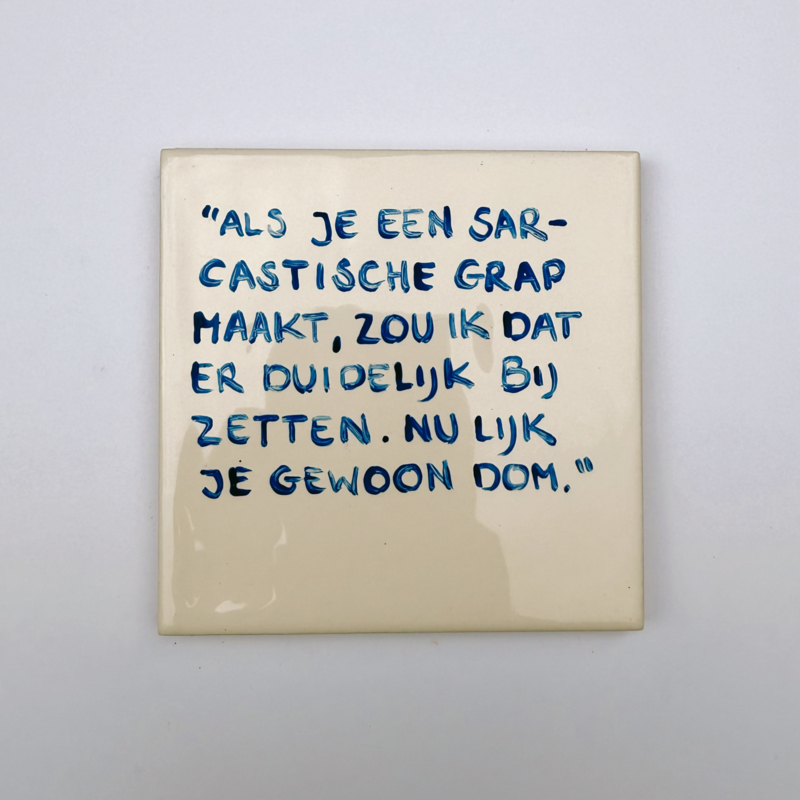 "ALS JE EEN SAR-
CASTISCHE GRAP
MAAKT, ZOU IK DAT
ER DUIDELIJK BIJ
ZETTEN. NU LIJK
JE GEWOON DOM."